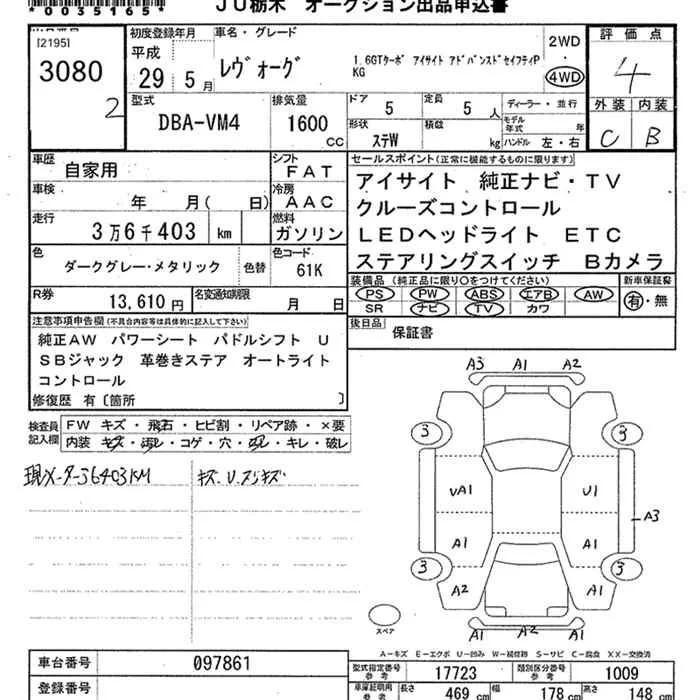 *0035165*
JU栃木 オークション出品申込書
[2195]
3080
2
初度登録年月
平成
29 5 月
車名・グレード
レヴォーグ
1.6GTターボ アイサイト アドバンスドセイフティP
KG
2WD
4WD
評価点
4
外装 内装
C B
型式
DBA-VM4
排気量
1600
cc
ドア
5
定員
5 人
形状
ステW
積載
kg
ディーラー・並行
モデル年式 年
ハンドル 左・右
車歴
自家用
シフト
FAT
車検
年 月( 日)
冷房
AAC
走行
3万6千403 km
燃料
ガソリン
色
ダークグレー・メタリック
色替
色コード
61K
R券
13,610 円
名変通知期限
月 日
セールスポイント(正常に機能するものに限ります)
アイサイト 純正ナビ・TV
クルーズコントロール
LEDヘッドライト ETC
ステアリングスイッチ Bカメラ
装備品 (純正品に限り○をつけてください)
PS PW ABS エアB AW
SR ナビ TV カワ
新車保証書
有・無
後日品
保証書
注意事項申告欄(不具合内容等は具体的に記入して下さい)
純正AW パワーシート パドルシフト U
SBジャック 革巻きステア オートライト
コントロール
修復歴 有〔箇所 〕
検査員
記入欄
FW キズ・飛石・ヒビ割・リペア跡・×要
内装 キズ・汚れ・コゲ・穴・ハガレ・キレ・破レ
現メーター36403KM
A3 A1 A2
3 3
UA1 U1
A3
A1 A1
3 3
A2 A1
A1 A2
A1
スペア
A-キズ E-エクボ U-凹み W-補修跡 S-サビ C-腐食 XX-交換済
車台番号
097861
登録番号
型式指定番号
参考
17723
類別区分番号
参考
1009
車庫証明用
参考
長さ
469 cm
幅
178 cm
高さ
148 cm